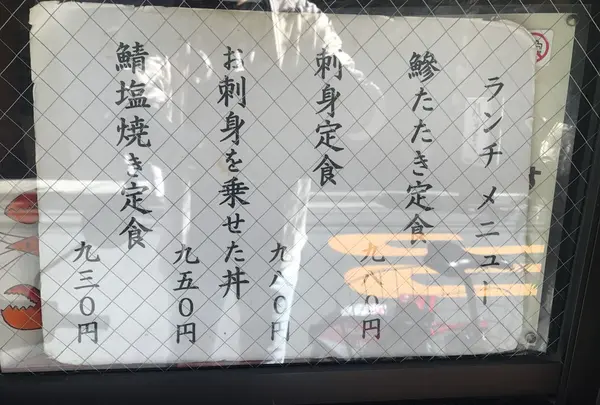 ランチメニュー
鰺たたき定食
九八〇円
刺身定食
九八〇円
お刺身を乗せた丼
九五〇円
鯖塩焼き定食
九三〇円